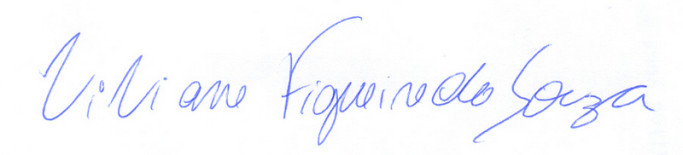 Liliane Figueiredo Souza